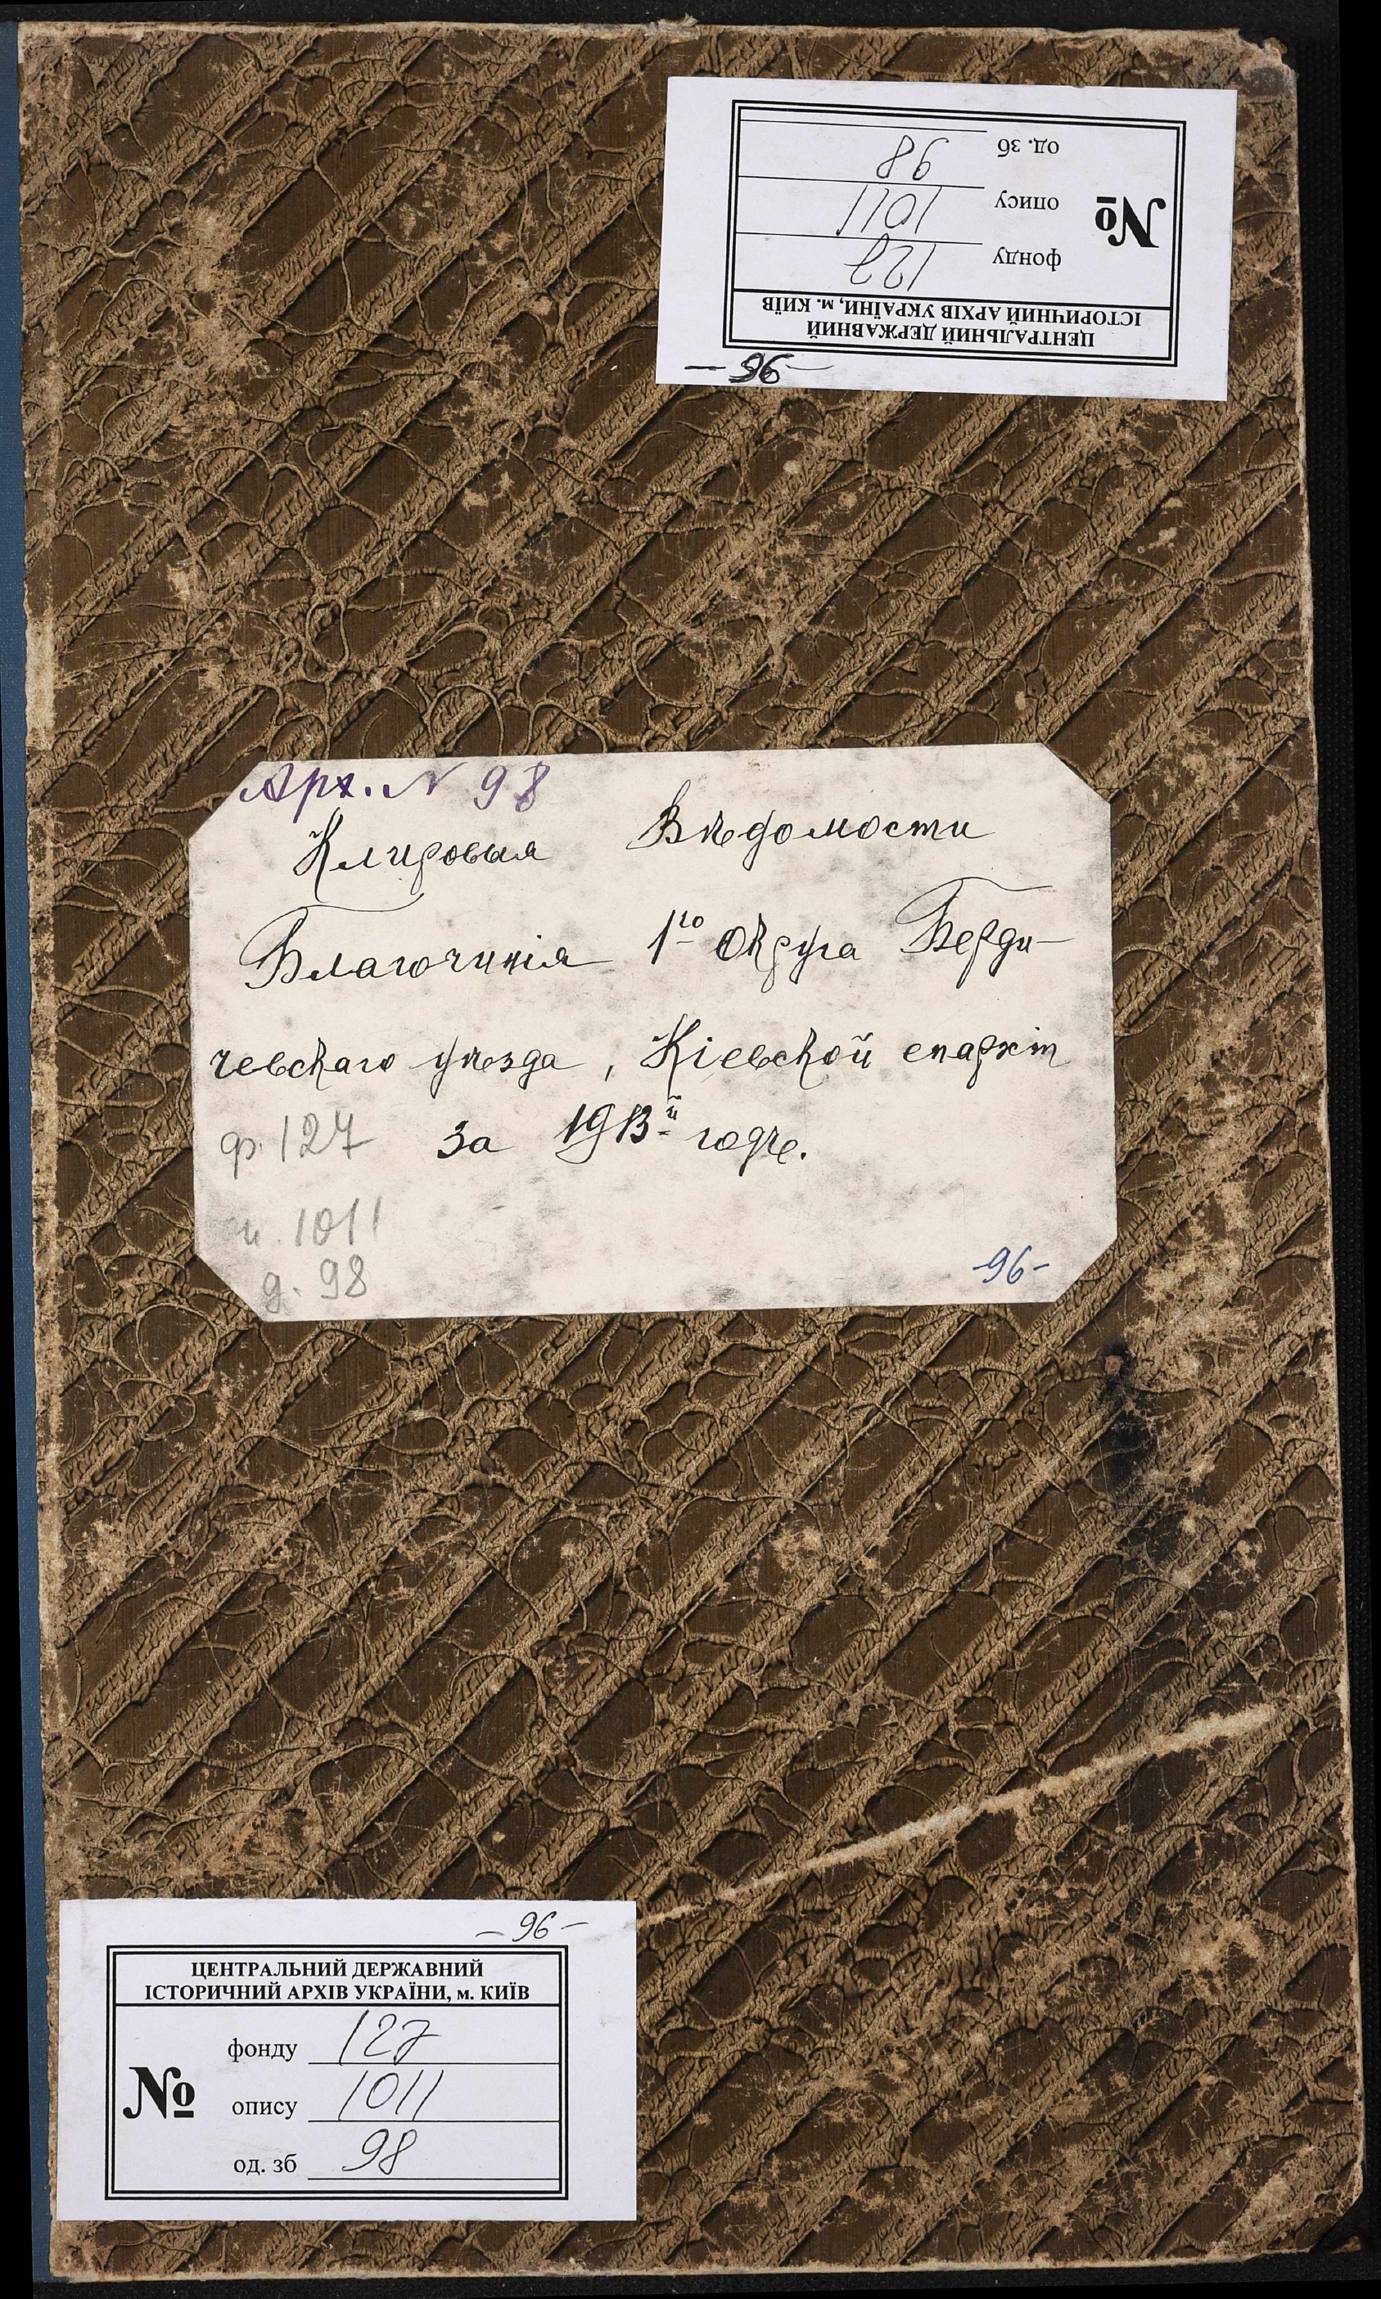 ЦЕНТРАЛЬНИЙ ДЕРЖАВНИЙ
ІСТОРИЧНИЙ АРХІВ УКРАЇНИ, м. КИЇВ
№
фонду 127
опису 1011
од. зб 98
- 96 -
Арх. N 98
Клировыя Вѣдомости
Благочинія 1го округа Берди-
чевскаго уѣзда, Кіевской епархіи
за 1913й годъ.
ф. 127
о. 1011
д. 98
-96-
- 96 -
ЦЕНТРАЛЬНИЙ ДЕРЖАВНИЙ
ІСТОРИЧНИЙ АРХІВ УКРАЇНИ, м. КИЇВ
№
фонду 127
опису 1011
од. зб 98